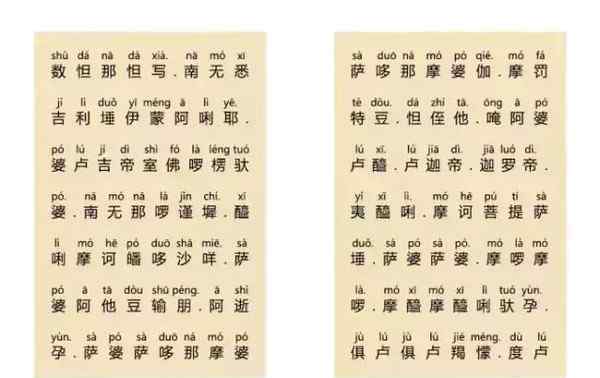 shù dá nā dá xià. nā mó xi
数怛那怛写.南无悉
jí lì duǒ yī méng ā lì yē.
吉利埵伊蒙阿唎耶.
pó lú jí dì shì fó là léng tuó
婆卢吉帝室佛啰楞驮
pó. nā mó nā là jǐn chí. xī
婆.南无那啰谨墀.醯
lì mó hē pó duō shā miē. sà
唎摩诃皤哆沙咩.萨
pó ā tā dòu shū péng. ā shì
婆阿他豆输朋.阿逝
yùn. sà pó sà duō nā mó pó
孕.萨婆萨哆那摩婆
sà duō nā mó pó qié. mó fá
萨哆那摩婆伽.摩罚
tè dòu. dá zhí tā. ōng ā pó
特豆.怛侄他.唵阿婆
lú xī. lú jiā dì. jiā luó dì.
卢醯.卢迦帝.迦罗帝.
yí xī lì. mó hē pú tí sà
夷醯唎.摩诃菩提萨
duǒ. sà pó sà pó. mó là mó
埵.萨婆萨婆.摩啰摩
là. mó xī mó xī lì tuó yùn.
啰.摩醯摩醯唎驮孕.
jù lú jù lú jié méng. dù lú
俱卢俱卢羯懞.度卢